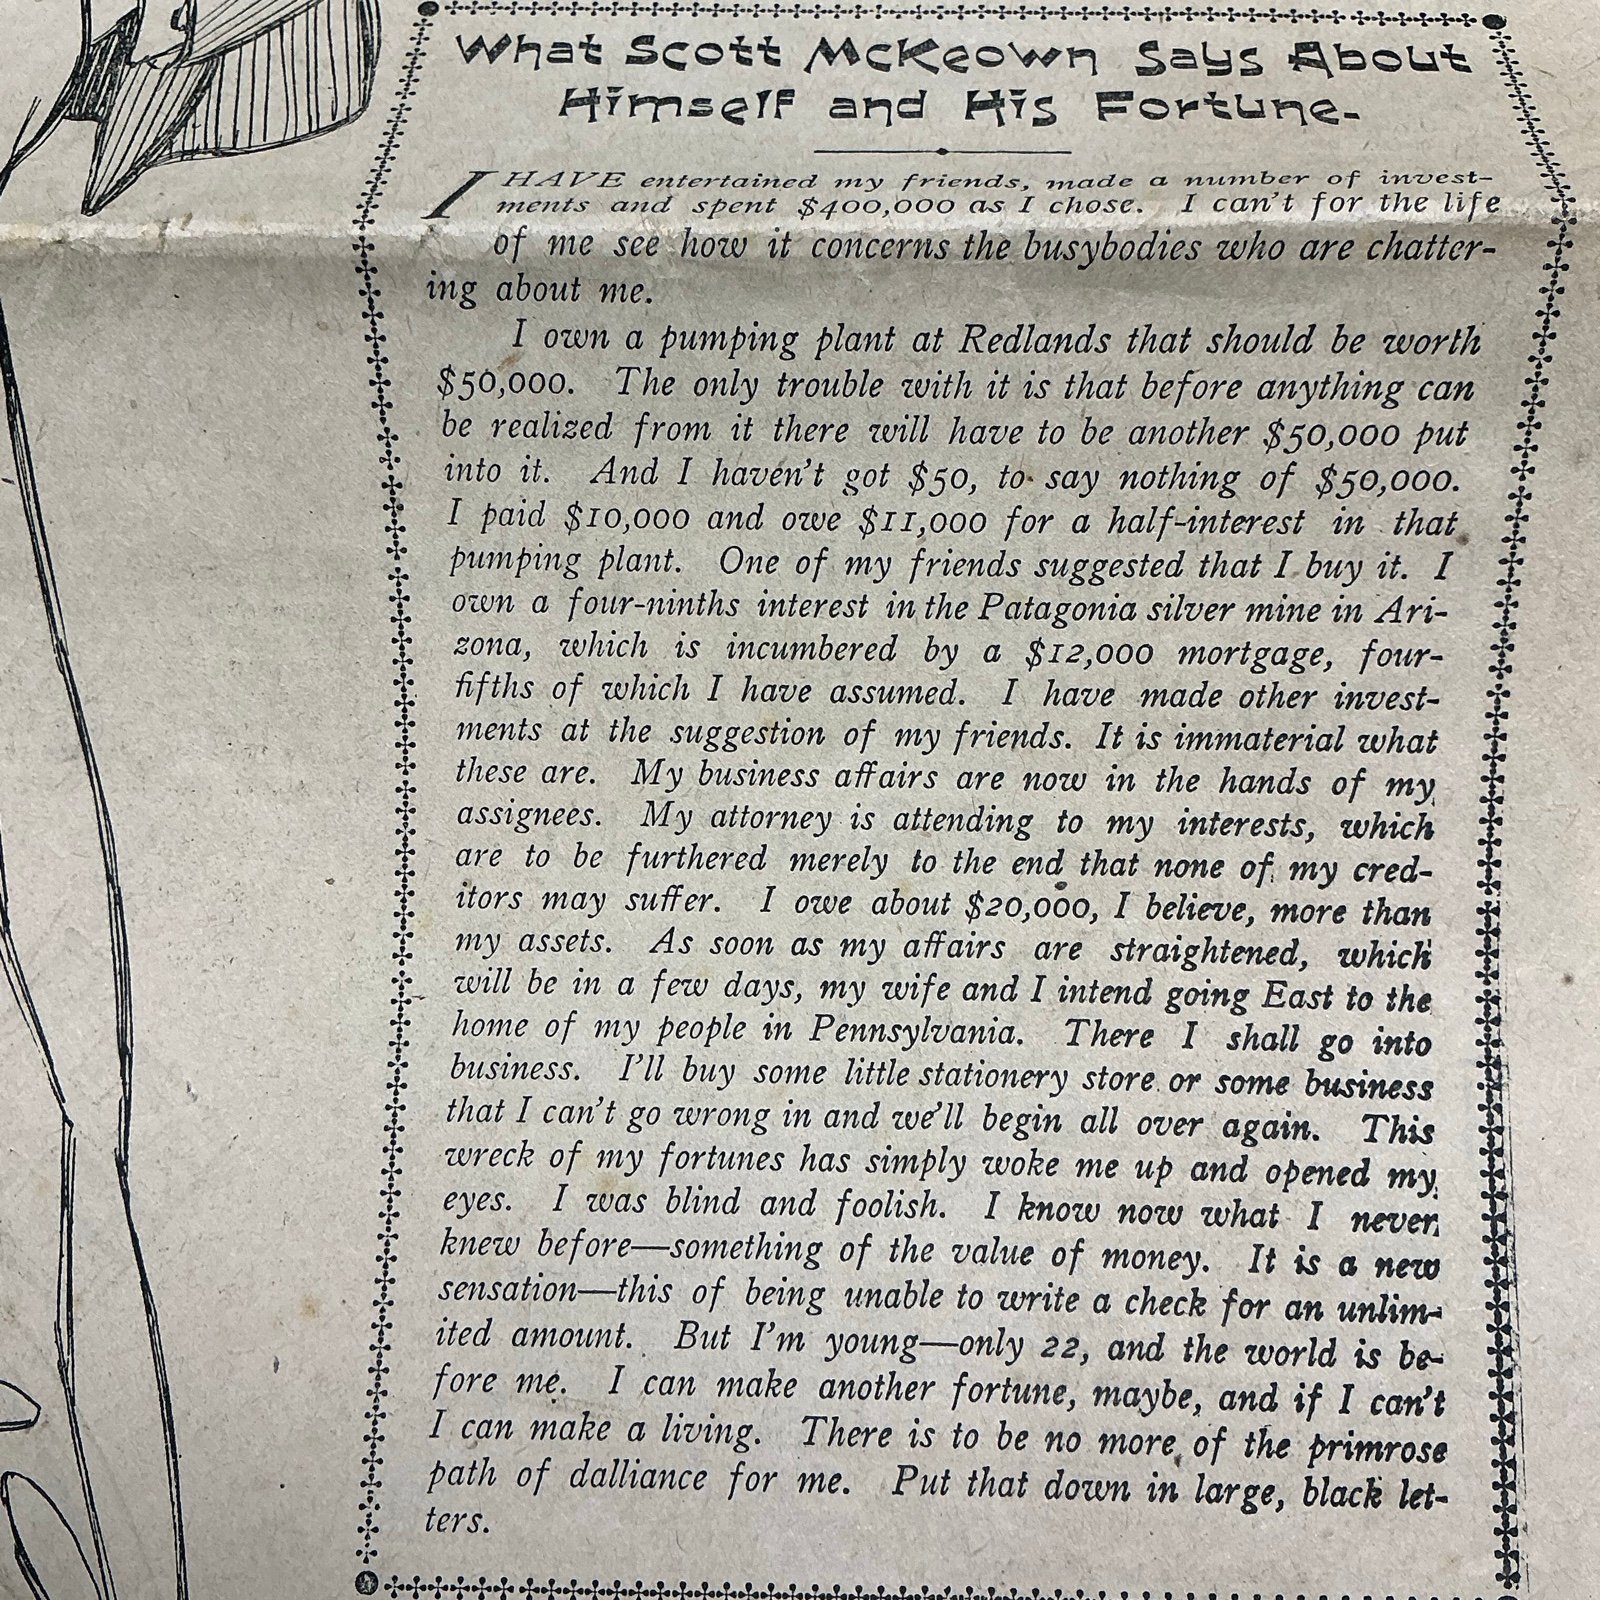 What Scott McKeown Says About
Himself and His Fortune.
I HAVE entertained my friends, made a number of invest-
ments and spent $400,000 as I chose. I can't for the life
of me see how it concerns the busybodies who are chatter-
ing about me.
I own a pumping plant at Redlands that should be worth
$50,000. The only trouble with it is that before anything can
be realized from it there will have to be another $50,000 put
into it. And I haven't got $50, to say nothing of $50,000.
I paid $10,000 and owe $11,000 for a half-interest in that
pumping plant. One of my friends suggested that I buy it. I
own a four-ninths interest in the Patagonia silver mine in Ari-
zona, which is incumbered by a $12,000 mortgage, four-
fifths of which I have assumed. I have made other invest-
ments at the suggestion of my friends. It is immaterial what
these are. My business affairs are now in the hands of my
assignees. My attorney is attending to my interests, which
are to be furthered merely to the end that none of my cred-
itors may suffer. I owe about $20,000, I believe, more than
my assets. As soon as my affairs are straightened, which
will be in a few days, my wife and I intend going East to the
home of my people in Pennsylvania. There I shall go into
business. I'll buy some little stationery store or some business
that I can't go wrong in and we'll begin all over again. This
wreck of my fortunes has simply woke me up and opened my
eyes. I was blind and foolish. I know now what I never
knew before—something of the value of money. It is a new
sensation—this of being unable to write a check for an unlim-
ited amount. But I'm young—only 22, and the world is be-
fore me. I can make another fortune, maybe, and if I can't
I can make a living. There is to be no more of the primrose
path of dalliance for me. Put that down in large, black let-
ters.